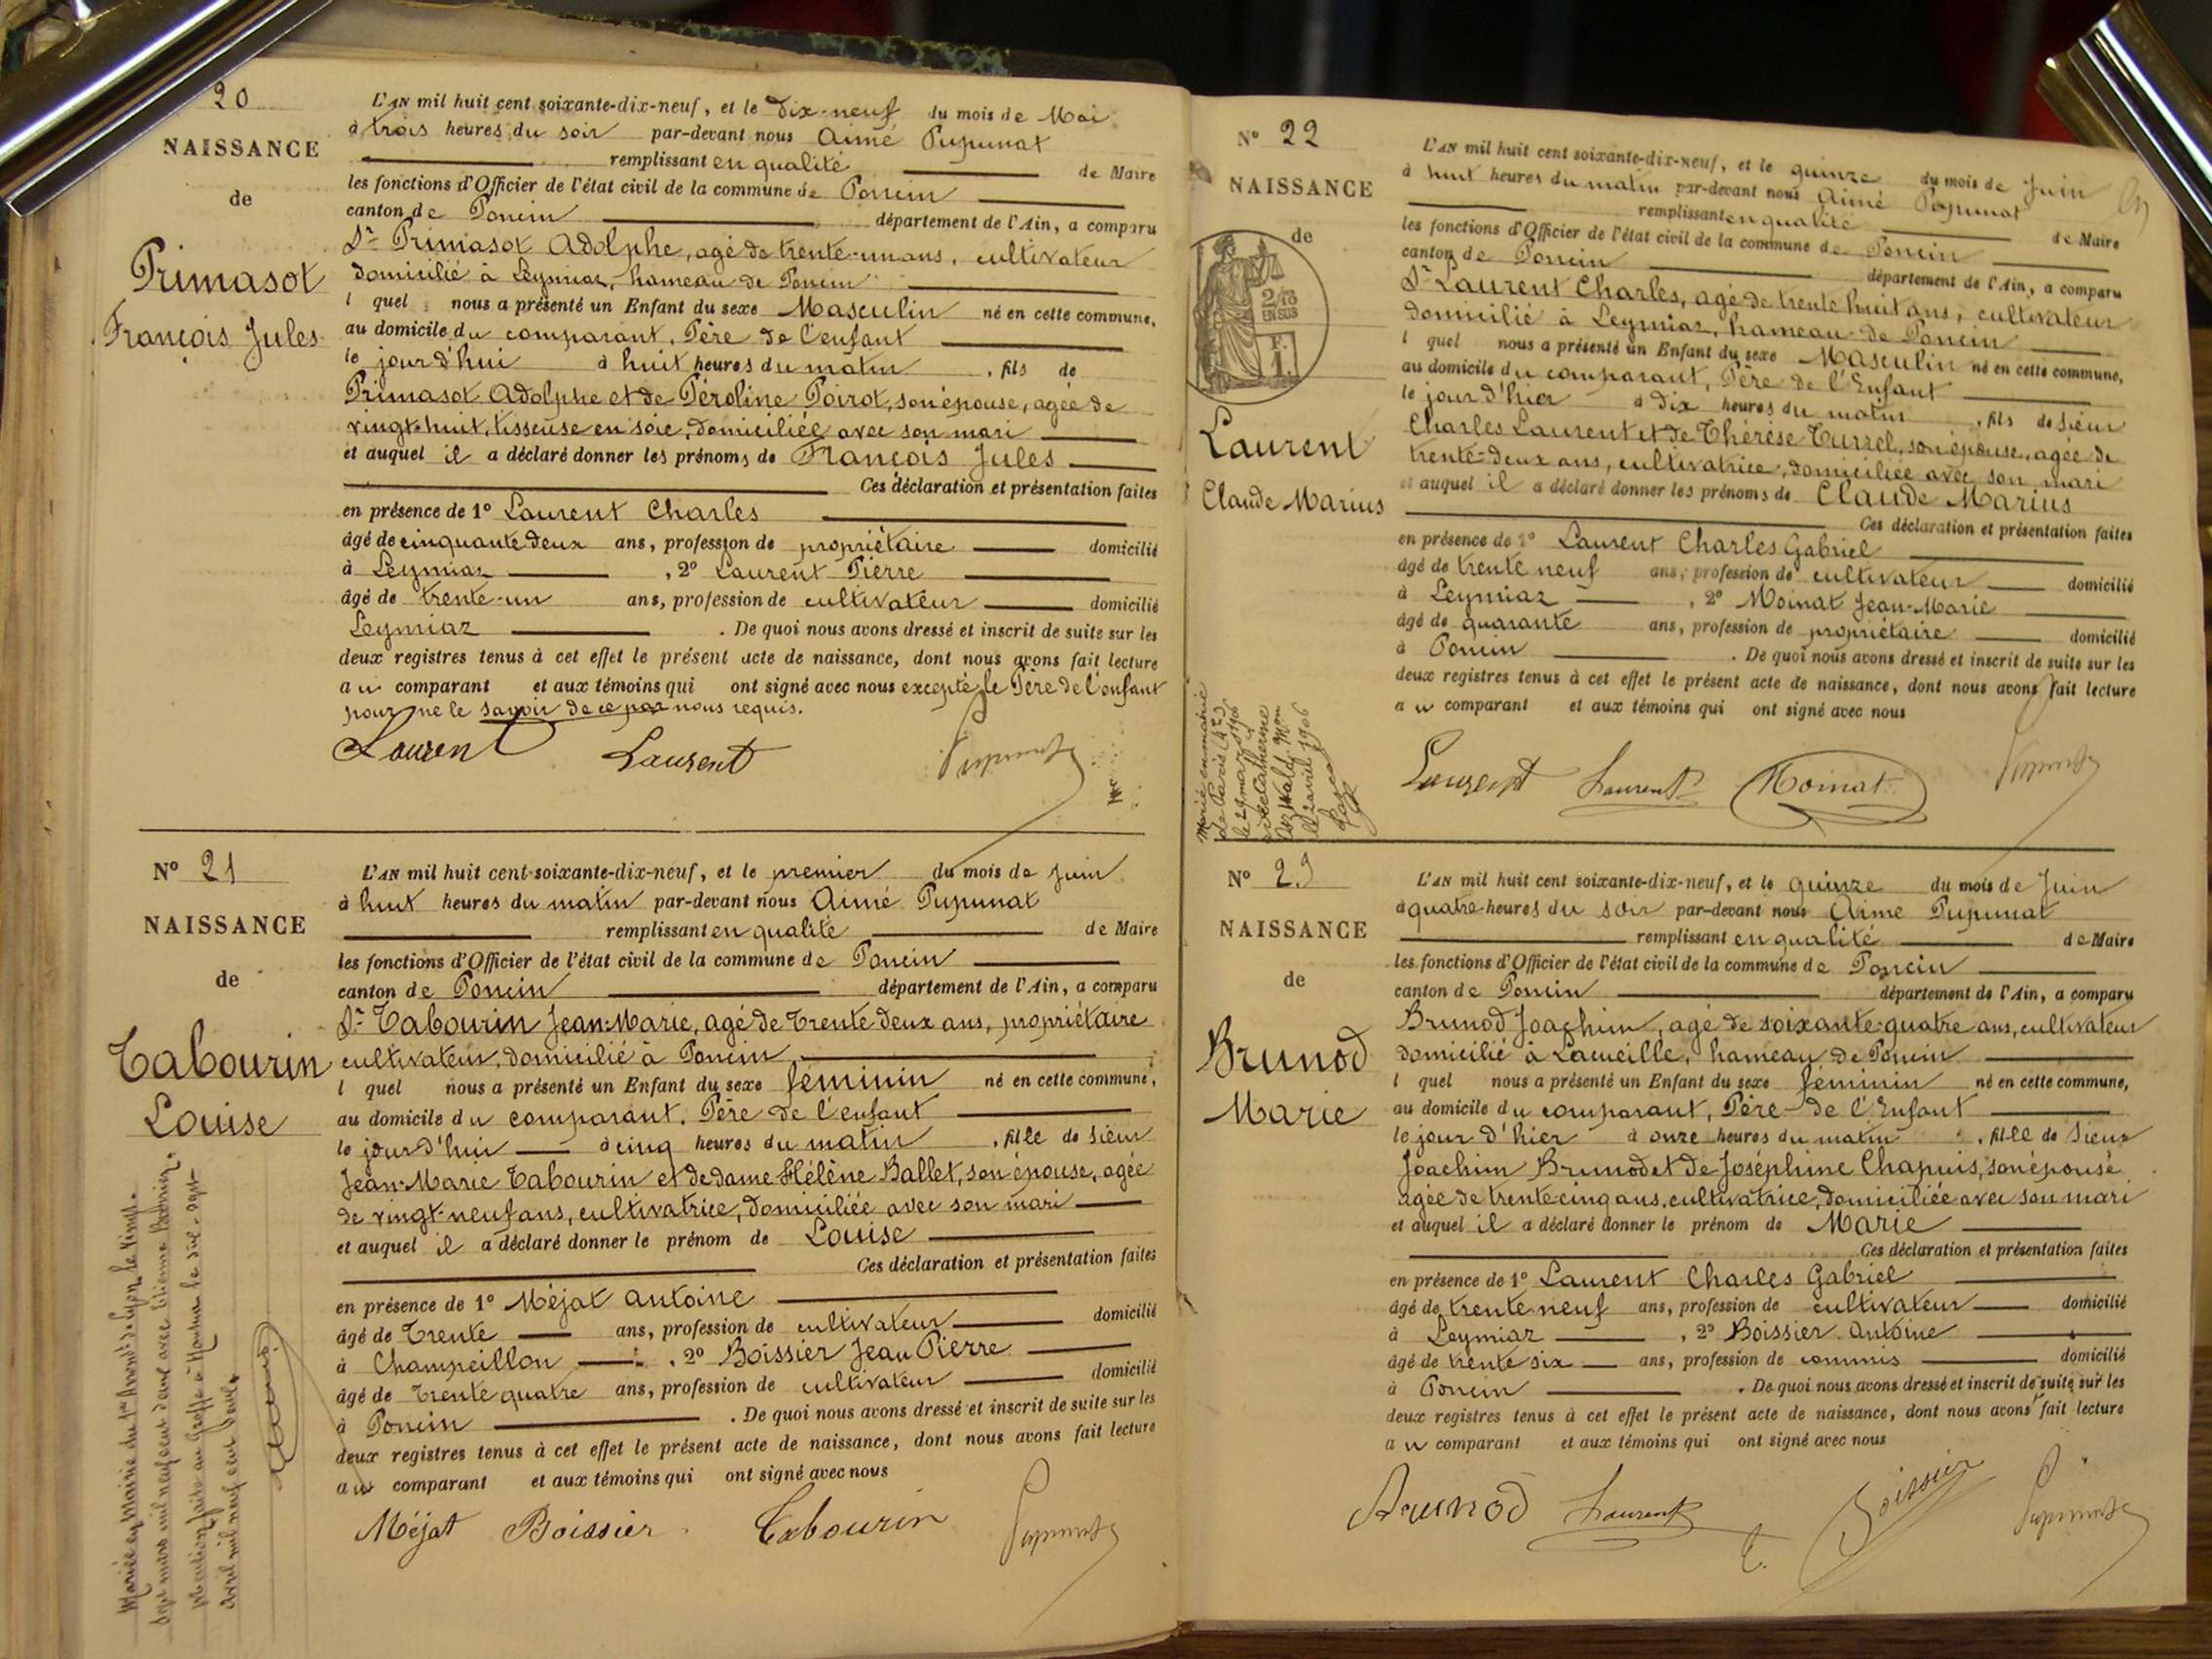 20
NAISSANCE
de
Primasot
François Jules
L'AN mil huit cent soixante-dix-neuf, et le Dix-neuf du mois de Mai
à trois heures du soir par-devant nous Aimé Pupunat
remplissant en qualité de Maire
les fonctions d'Officier de l'état civil de la commune de Poncin
canton de Poncin département de l'Ain, a comparu
Sr Primasot Adolphe, agé de trente-un ans, cultivateur
domicilié à Leymiaz, hameau de Poncin
l quel nous a présenté un Enfant du sexe Masculin né en cette commune,
au domicile du comparant, Père de l'enfant
le jour d'hui à huit heures du matin, fils de
Primasot Adolphe et de Péroline Poirot, son épouse, agée de
vingt-huit, tisseuse en soie, domiciliée avec son mari
et auquel il a déclaré donner les prénoms de François Jules
Ces déclaration et présentation faites
en présence de 1° Laurent Charles
âgé de cinquante deux ans, profession de propriétaire domicilié
à Leymiaz, 2° Laurent Pierre
âgé de trente-un ans, profession de cultivateur domicilié
Leymiaz. De quoi nous avons dressé et inscrit de suite sur les
deux registres tenus à cet effet le présent acte de naissance, dont nous avons fait lecture
au comparant et aux témoins qui ont signé avec nous excepté le Père de l'enfant
pour ne le savoir de ce par nous requis.
Laurent Laurent Pupunat
N° 21
NAISSANCE
de
Tabourin
Louise
Mariée en Mairie du 1er Arrondt de Lyon le vingt-
sept mars mil neuf cent deux avec Etienne
Mention faite au Greffe à Nantua le dix-sept
avril mil neuf cent deux.
L'AN mil huit cent soixante-dix-neuf, et le premier du mois de Juin
à huit heures du matin par-devant nous Aimé Pupunat
remplissant en qualité de Maire
les fonctions d'Officier de l'état civil de la commune de Poncin
canton de Poncin département de l'Ain, a comparu
Sr Tabourin Jean-Marie, agé de Trente deux ans, propriétaire
cultivateur, domicilié à Poncin
l quel nous a présenté un Enfant du sexe féminin né en cette commune,
au domicile du comparant. Père de l'enfant
le jour d'hui à cinq heures du matin, fille de Sieur
Jean-Marie Tabourin et de dame Hélène Ballet, son épouse, agée
de vingt-neuf ans, cultivatrice, domiciliée avec son mari
et auquel il a déclaré donner le prénom de Louise
Ces déclaration et présentation faites
en présence de 1° Méjat Antoine
âgé de Trente ans, profession de cultivateur domicilié
à Champeillon, 2° Boissier Jean Pierre
âgé de Trente quatre ans, profession de cultivateur domicilié
à Poncin. De quoi nous avons dressé et inscrit de suite sur les
deux registres tenus à cet effet le présent acte de naissance, dont nous avons fait lecture
au comparant et aux témoins qui ont signé avec nous
Méjat Boissier Tabourin Pupunat
N° 22
NAISSANCE
de
2/10
EN SUS
F.
1.
Laurent
Claude Marius
Marié en mairie
de Paris
le 29 mars 1906
Catherine
Mon
le 2 avril 1906
L'AN mil huit cent soixante-dix-neuf, et le quinze du mois de Juin
à huit heures du matin par-devant nous Aimé Pupunat
remplissant en qualité de Maire
les fonctions d'Officier de l'état civil de la commune de Poncin
canton de Poncin département de l'Ain, a comparu
Sr Laurent Charles, agé de trente huit ans, cultivateur
domicilié à Leymiaz, hameau de Poncin
l quel nous a présenté un Enfant du sexe Masculin né en cette commune,
au domicile du comparant, Père de l'Enfant
le jour d'hier à dix heures du matin, fils de Sieur
Charles Laurent et de Thérèse Turrel, son épouse, agée de
trente-deux ans, cultivatrice, domiciliée avec son mari
et auquel il a déclaré donner les prénoms de Claude Marius
Ces déclaration et présentation faites
en présence de 1° Laurent Charles Gabriel
âgé de trente neuf ans, profession de cultivateur domicilié
à Leymiaz, 2° Moinat Jean-Marie
âgé de quarante ans, profession de propriétaire domicilié
à Poncin. De quoi nous avons dressé et inscrit de suite sur les
deux registres tenus à cet effet le présent acte de naissance, dont nous avons fait lecture
au comparant et aux témoins qui ont signé avec nous
Laurent Laurent Moinat Pupunat
N° 23
NAISSANCE
de
Brunod
Marie
L'AN mil huit cent soixante-dix-neuf, et le quinze du mois de Juin
à quatre heures du soir par-devant nous Aimé Pupunat
remplissant en qualité de Maire
les fonctions d'Officier de l'état civil de la commune de Poncin
canton de Poncin département de l'Ain, a comparu
Brunod Joachim, agé de soixante-quatre ans, cultivateur
domicilié à Lacueille, hameau de Poncin
l quel nous a présenté un Enfant du sexe féminin né en cette commune,
au domicile du comparant, Père de l'Enfant
le jour d'hier à onze heures du matin, fille de Sieur
Joachim Brunod et de Joséphine Chapuis, son épouse
agée de trente cinq ans, cultivatrice, domiciliée avec son mari
et auquel il a déclaré donner le prénom de Marie
Ces déclaration et présentation faites
en présence de 1° Laurent Charles Gabriel
âgé de trente neuf ans, profession de cultivateur domicilié
à Leymiaz, 2° Boissier Antoine
âgé de trente six ans, profession de commis domicilié
à Poncin. De quoi nous avons dressé et inscrit de suite sur les
deux registres tenus à cet effet le présent acte de naissance, dont nous avons fait lecture
au comparant et aux témoins qui ont signé avec nous
Brunod Laurent Boissier Pupunat